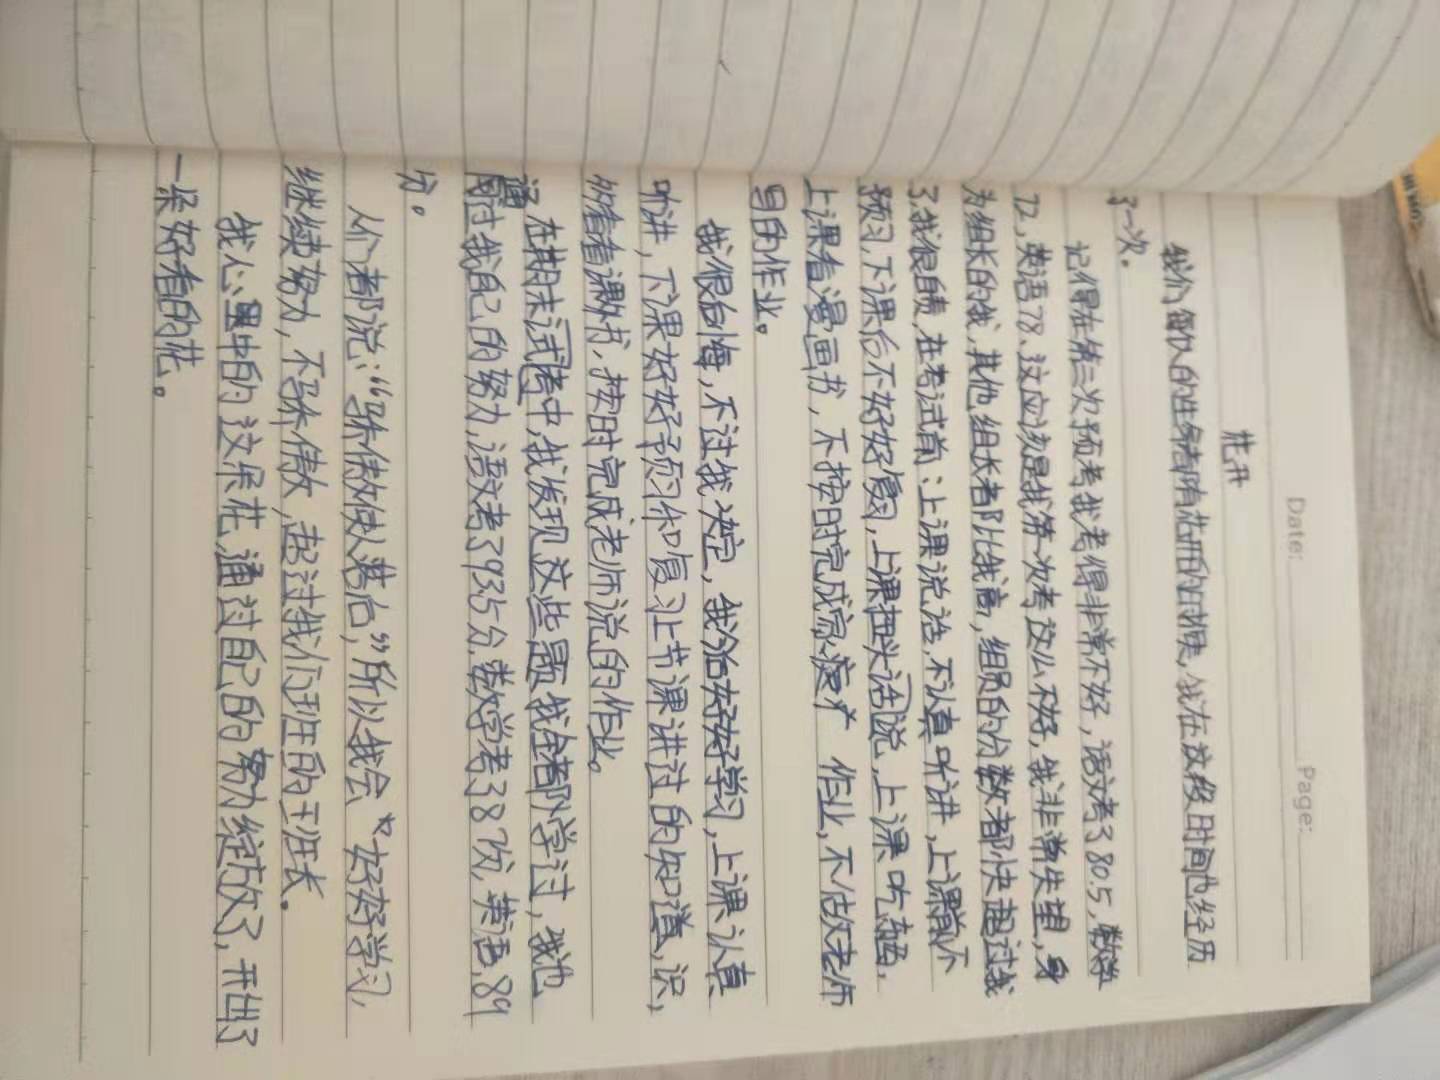 Date: Page:
花开
我们每个人的生命都有花开的时候，我在这段时间也经历
了一次。
记得在第三次预考我考得非常不好，语文考了80.5，数学
72，英语78、这应该是我第一次考这么不好，我非常失望，身
为组长的我，其他组长都比我高，组员的分数都快超过我
了，我很自责，在考试前：上课说话，不认真听讲，上课前不
预习，下课后不好好复习，上课扭头话说，上课吃东西，
上课看漫画书，不按时完成家庭作业，不做老师
写的作业。
我很后悔，不过我决定，我会好好学习，上课认真
听讲，下课好好预习和复习上节课讲过的知道，识，
你看看课外书、按时完成老师说的作业。
在期末试考中，我发现这些题我全都学过，我也
通过我自己的努力，语文考了93.5分，数学考了87分，英语，89
分。
人人都说：“骄傲使人落后，”所以我会“好好学习，
继续努力，不骄傲，超过我们班的班长。
我心里中的这朵花，通过自己的努力绽放了，开出了
一朵好看的花。